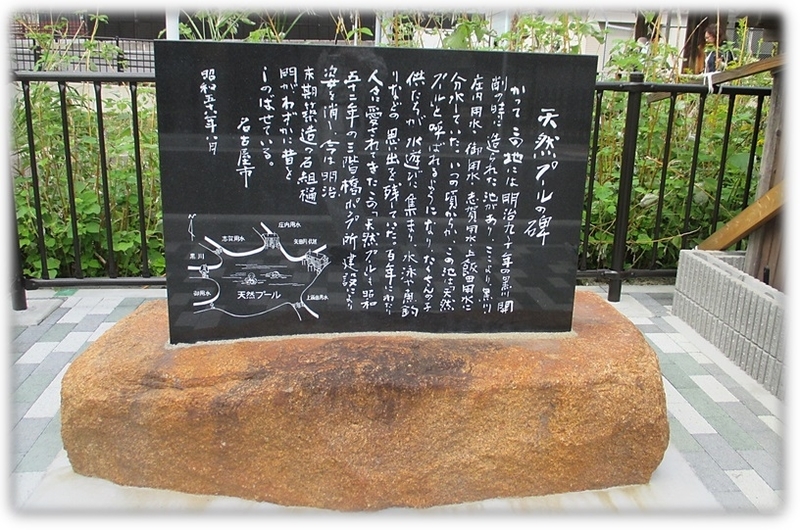 天然プールの碑
かつて当地には明治九・十年の黒川開
削の時に造られた池があり、ここより黒川
庄内用水 御用水 志賀用水 上飯田用水に
分水していた。いつの頃からか、この池は天然
プールと呼ばれるようになり、たくさんの子
供たちが水遊びに集まり、水泳や魚釣
りなどの思い出を残していた。百年にわたり
人々に愛されてきたこの天然プールも昭和
五十二年の三階橋ポンプ所建設により
姿を消し、今は明治
末期築造の石組樋
門がわずかに昔を
しのばせている。
昭和五六年八月
名古屋市
庄内用水
志賀用水
矢田川伏越
黒川
御用水
天然プール
上飯田用水